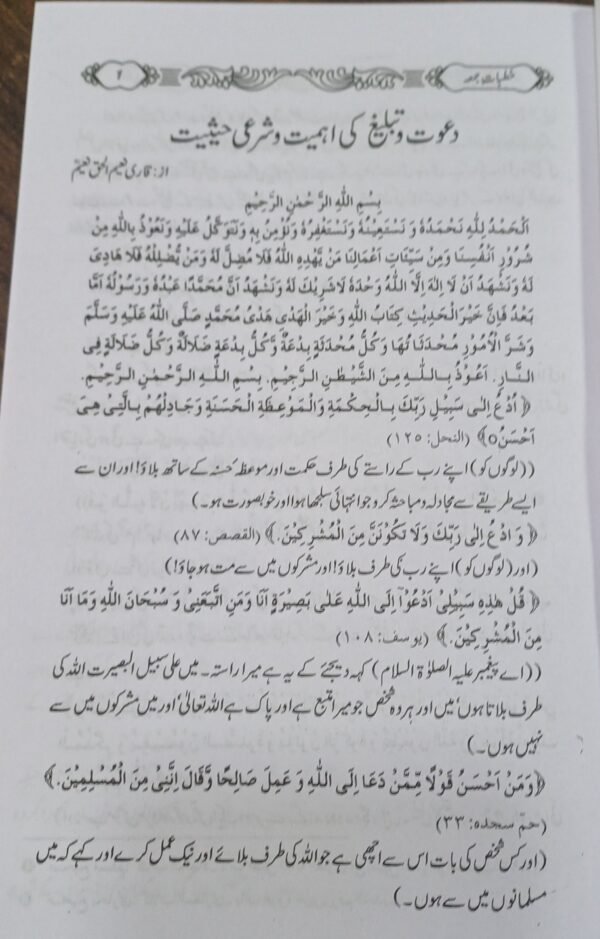 خطبات جمعہ
۹
دعوت و تبلیغ کی اہمیت و شرعی حیثیت
از: قاری نعیم الحق نعیم
بِسْمِ اللّٰهِ الرَّحْمٰنِ الرَّحِيْمِ
اَلْحَمْدُ لِلّٰهِ نَحْمَدُهٗ وَ نَسْتَعِيْنُهٗ وَنَسْتَغْفِرُهٗ وَنُؤْمِنُ بِهٖ وَنَتَوَكَّلُ عَلَيْهِ وَنَعُوْذُ بِاللّٰهِ مِنْ
شُرُوْرِ اَنْفُسِنَا وَمِنْ سَيِّئَاتِ اَعْمَالِنَا مَنْ يَّهْدِهِ اللّٰهُ فَلَا مُضِلَّ لَهٗ وَمَنْ يُّضْلِلْهُ فَلَا هَادِىَ
لَهٗ وَنَشْهَدُ اَنْ لَا اِلٰهَ اِلَّا اللّٰهُ وَحْدَهٗ لَاشَرِيْكَ لَهٗ وَنَشْهَدُ اَنَّ مُحَمَّدًا عَبْدُهٗ وَرَسُوْلُهٗ اَمَّا
بَعْدُ فَاِنَّ خَيْرَ الْحَدِيْثِ كِتَابُ اللّٰهِ وَخَيْرَ الْهَدْىِ هَدْىُ مُحَمَّدٍ صَلَّى اللّٰهُ عَلَيْهِ وَسَلَّمَ
وَشَرَّ الْاُمُوْرِ مُحْدَثَاتُهَا وَكُلُّ مُحْدَثَةٍ بِدْعَةٌ وَّكُلُّ بِدْعَةٍ ضَلَالَةٌ وَّكُلُّ ضَلَالَةٍ فِى
النَّارِ. اَعُوْذُ بِاللّٰهِ مِنَ الشَّيْطٰنِ الرَّجِيْمِ. بِسْمِ اللّٰهِ الرَّحْمٰنِ الرَّحِيْمِ.
﴿اُدْعُ اِلٰى سَبِيْلِ رَبِّكَ بِالْحِكْمَةِ وَالْمَوْعِظَةِ الْحَسَنَةِ وَجَادِلْهُمْ بِالَّتِىْ هِىَ
اَحْسَنُ٥﴾ (النحل: ۱۲۵)
((لوگوں کو) اپنے رب کے راستے کی طرف حکمت اور موعظہ حسنہ کے ساتھ بلاؤ! اور ان سے
ایسے طریقے سے مجادلہ و مباحثہ کرو جو انتہائی سلجھا ہوا اور خوبصورت ہو۔)
﴿وَ ادْعُ اِلٰى رَبِّكَ وَلَا تَكُوْنَنَّ مِنَ الْمُشْرِكِيْنَ.﴾ (القصص: ۸۷)
(اور (لوگوں کو) اپنے رب کی طرف بلاؤ! اور مشرکوں میں سے مت ہو جاؤ!)
﴿قُلْ هٰذِهٖ سَبِيْلِىْ اَدْعُوْٓا اِلَى اللّٰهِ عَلٰى بَصِيْرَةٍ اَنَا وَمَنِ اتَّبَعَنِىْ وَ سُبْحَانَ اللّٰهِ وَمَا اَنَا
مِنَ الْمُشْرِكِيْنَ.﴾ (یوسف: ۱۰۸)
((اے پیغمبر علیہ الصلوٰۃ السلام) کہہ دیجئے کہ یہ ہے میرا راستہ۔ میں علی سبیل البصیرت اللہ کی
طرف بلاتا ہوں، میں اور ہر وہ شخص جو میرا متبع ہے اور پاک ہے اللہ تعالیٰ، اور میں مشرکوں میں سے
نہیں ہوں۔)
﴿وَمَنْ اَحْسَنُ قَوْلًا مِّمَّنْ دَعَا اِلَى اللّٰهِ وَ عَمِلَ صَالِحًا وَّقَالَ اِنَّنِىْ مِنَ الْمُسْلِمِيْنَ.﴾
(حم سجدہ: ۳۳)
(اور کس شخص کی بات اس سے اچھی ہے جو اللہ کی طرف بلائے اور نیک عمل کرے اور کہے کہ میں
مسلمانوں میں سے ہوں۔)